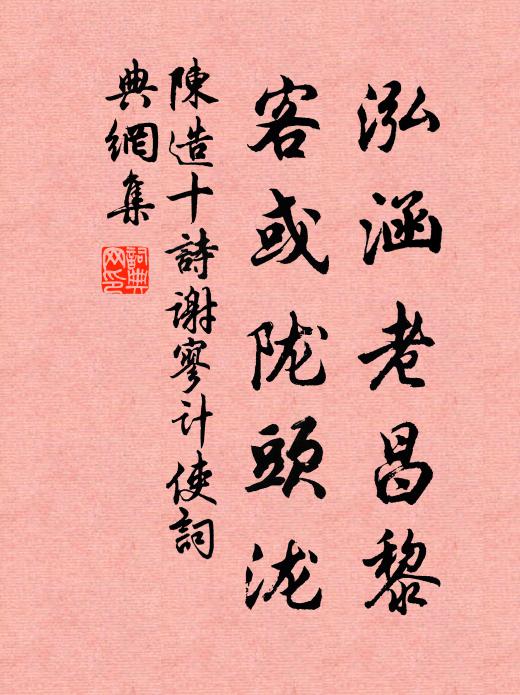 泓涵老昌黎
客或陇頭泷
陳造十詩谢寥计使詞
典網集
詞典
网印